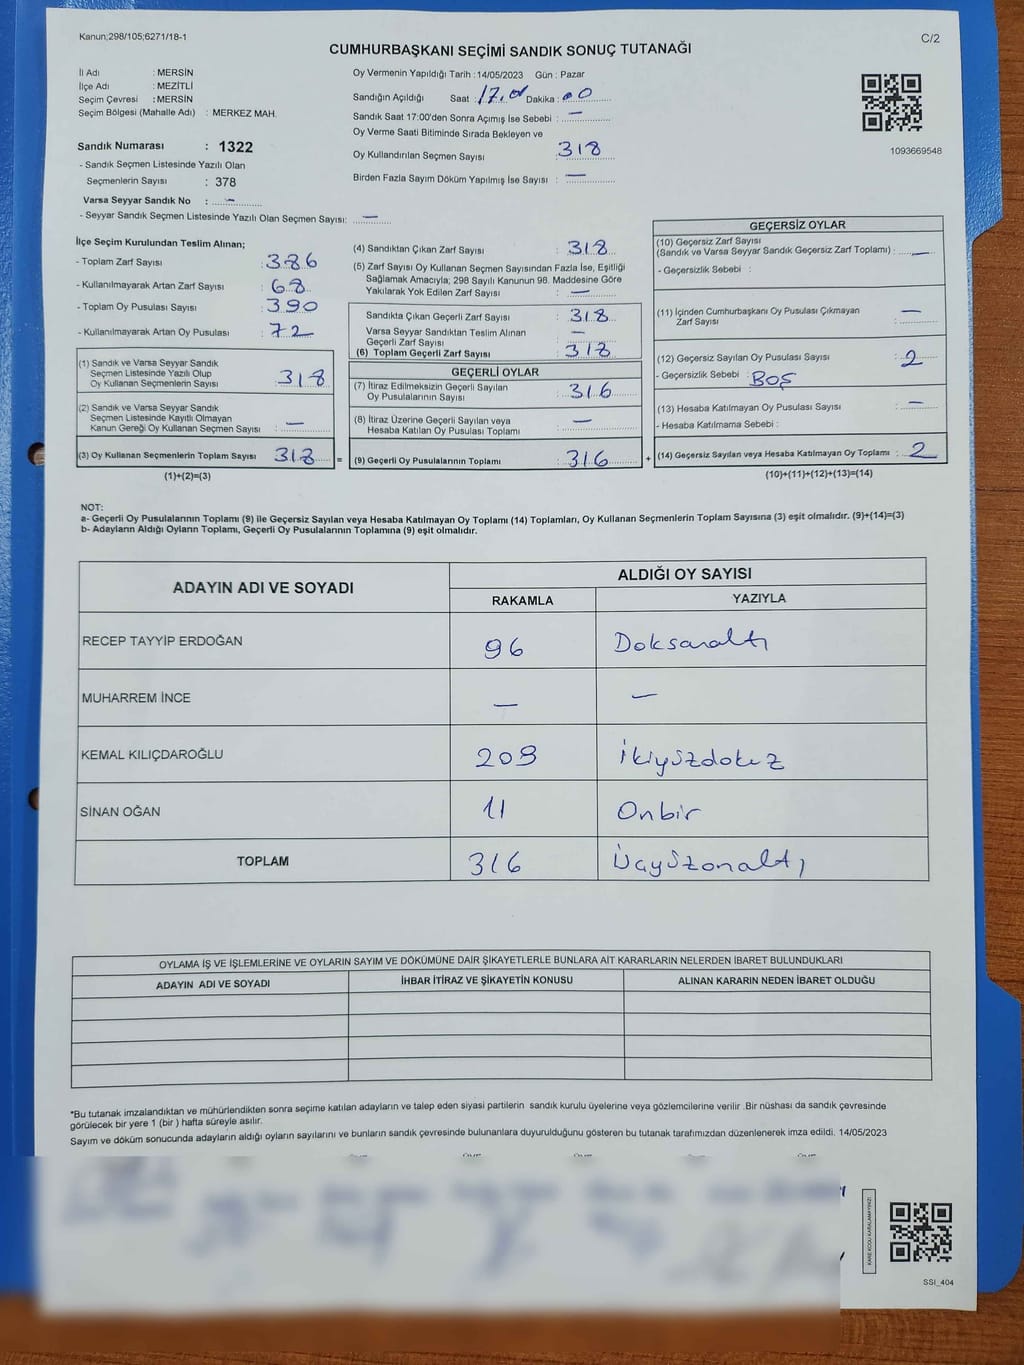 Kanun;298/105;6271/18-1
C/2
CUMHURBAŞKANI SEÇİMİ SANDIK SONUÇ TUTANAĞI
İl Adı : MERSİN
İlçe Adı : MEZİTLİ
Seçim Çevresi : MERSİN
Seçim Bölgesi (Mahalle Adı) : MERKEZ MAH.
Sandık Numarası : 1322
- Sandık Seçmen Listesinde Yazılı Olan
Seçmenlerin Sayısı : 378
Varsa Seyyar Sandık No : —
- Seyyar Sandık Seçmen Listesinde Yazılı Olan Seçmen Sayısı: —
Oy Vermenin Yapıldığı Tarih : 14/05/2023 Gün : Pazar
Sandığın Açıldığı Saat : 17.0 Dakika : 00
Sandık Saat 17:00'den Sonra Açımış İse Sebebi : —
Oy Verme Saati Bitiminde Sırada Bekleyen ve
Oy Kullandırılan Seçmen Sayısı : 318
Birden Fazla Sayım Döküm Yapılmış İse Sayısı : —
1093669548
İlçe Seçim Kurulundan Teslim Alınan;
- Toplam Zarf Sayısı : 386
- Kullanılmayarak Artan Zarf Sayısı : 68
- Toplam Oy Pusulası Sayısı : 390
- Kullanılmayarak Artan Oy Pusulası : 72
(1) Sandık ve Varsa Seyyar Sandık
Seçmen Listesinde Yazılı Olup
Oy Kullanan Seçmenlerin Sayısı : 318
(2) Sandık ve Varsa Seyyar Sandık
Seçmen Listesinde Kayıtlı Olmayan
Kanun Gereği Oy Kullanan Seçmen Sayısı : —
(3) Oy Kullanan Seçmenlerin Toplam Sayısı : 318 =
(1)+(2)=(3)
(4) Sandıktan Çıkan Zarf Sayısı : 318
(5) Zarf Sayısı Oy Kullanan Seçmen Sayısından Fazla İse, Eşitliği
Sağlamak Amacıyla; 298 Sayılı Kanunun 98. Maddesine Göre
Yakılarak Yok Edilen Zarf Sayısı : —
Sandıkta Çıkan Geçerli Zarf Sayısı : 318
Varsa Seyyar Sandıktan Teslim Alınan
Geçerli Zarf Sayısı : —
(6) Toplam Geçerli Zarf Sayısı : 318
GEÇERLİ OYLAR
(7) İtiraz Edilmeksizin Geçerli Sayılan
Oy Pusulalarının Sayısı : 316
(8) İtiraz Üzerine Geçerli Sayılan veya
Hesaba Katılan Oy Pusulası Toplamı : —
(9) Geçerli Oy Pusulalarının Toplamı : 316 +
GEÇERSİZ OYLAR
(10) Geçersiz Zarf Sayısı
(Sandık ve Varsa Seyyar Sandık Geçersiz Zarf Toplamı) : —
- Geçersizlik Sebebi :
(11) İçinden Cumhurbaşkanı Oy Pusulası Çıkmayan
Zarf Sayısı : —
(12) Geçersiz Sayılan Oy Pusulası Sayısı : 2
- Geçersizlik Sebebi : BOŞ
(13) Hesaba Katılmayan Oy Pusulası Sayısı : —
- Hesaba Katılmama Sebebi :
(14) Geçersiz Sayılan veya Hesaba Katılmayan Oy Toplamı : 2
(10)+(11)+(12)+(13)=(14)
NOT:
a- Geçerli Oy Pusulalarının Toplamı (9) ile Geçersiz Sayılan veya Hesaba Katılmayan Oy Toplamı (14) Toplamları, Oy Kullanan Seçmenlerin Toplam Sayısına (3) eşit olmalıdır. (9)+(14)=(3)
b- Adayların Aldığı Oyların Toplamı, Geçerli Oy Pusulalarının Toplamına (9) eşit olmalıdır.
ADAYIN ADI VE SOYADI ALDIĞI OY SAYISI
RAKAMLA YAZIYLA
RECEP TAYYİP ERDOĞAN 96 Doksanaltı
MUHARREM İNCE — —
KEMAL KILIÇDAROĞLU 209 İkiyüzdokuz
SİNAN OĞAN 11 Onbir
TOPLAM 316 Üçyüzonaltı
OYLAMA İŞ VE İŞLEMLERİNE VE OYLARIN SAYIM VE DÖKÜMÜNE DAİR ŞİKAYETLERLE BUNLARA AİT KARARLARIN NELERDEN İBARET BULUNDUKLARI
ADAYIN ADI VE SOYADI İHBAR İTİRAZ VE ŞİKAYETİN KONUSU ALINAN KARARIN NEDEN İBARET OLDUĞU
*Bu tutanak imzalandıktan ve mühürlendikten sonra seçime katılan adayların ve talep eden siyasi partilerin sandık kurulu üyelerine veya gözlemcilerine verilir .Bir nüshası da sandık çevresinde
görülecek bir yere 1 (bir ) hafta süreyle asılır.
Sayım ve döküm sonucunda adayların aldığı oyların sayılarını ve bunların sandık çevresinde bulunanlara duyurulduğunu gösteren bu tutanak tarafımızdan düzenlenerek imza edildi. 14/05/2023
KARE KODU KARALAMAYINIZ!
SSİ_404